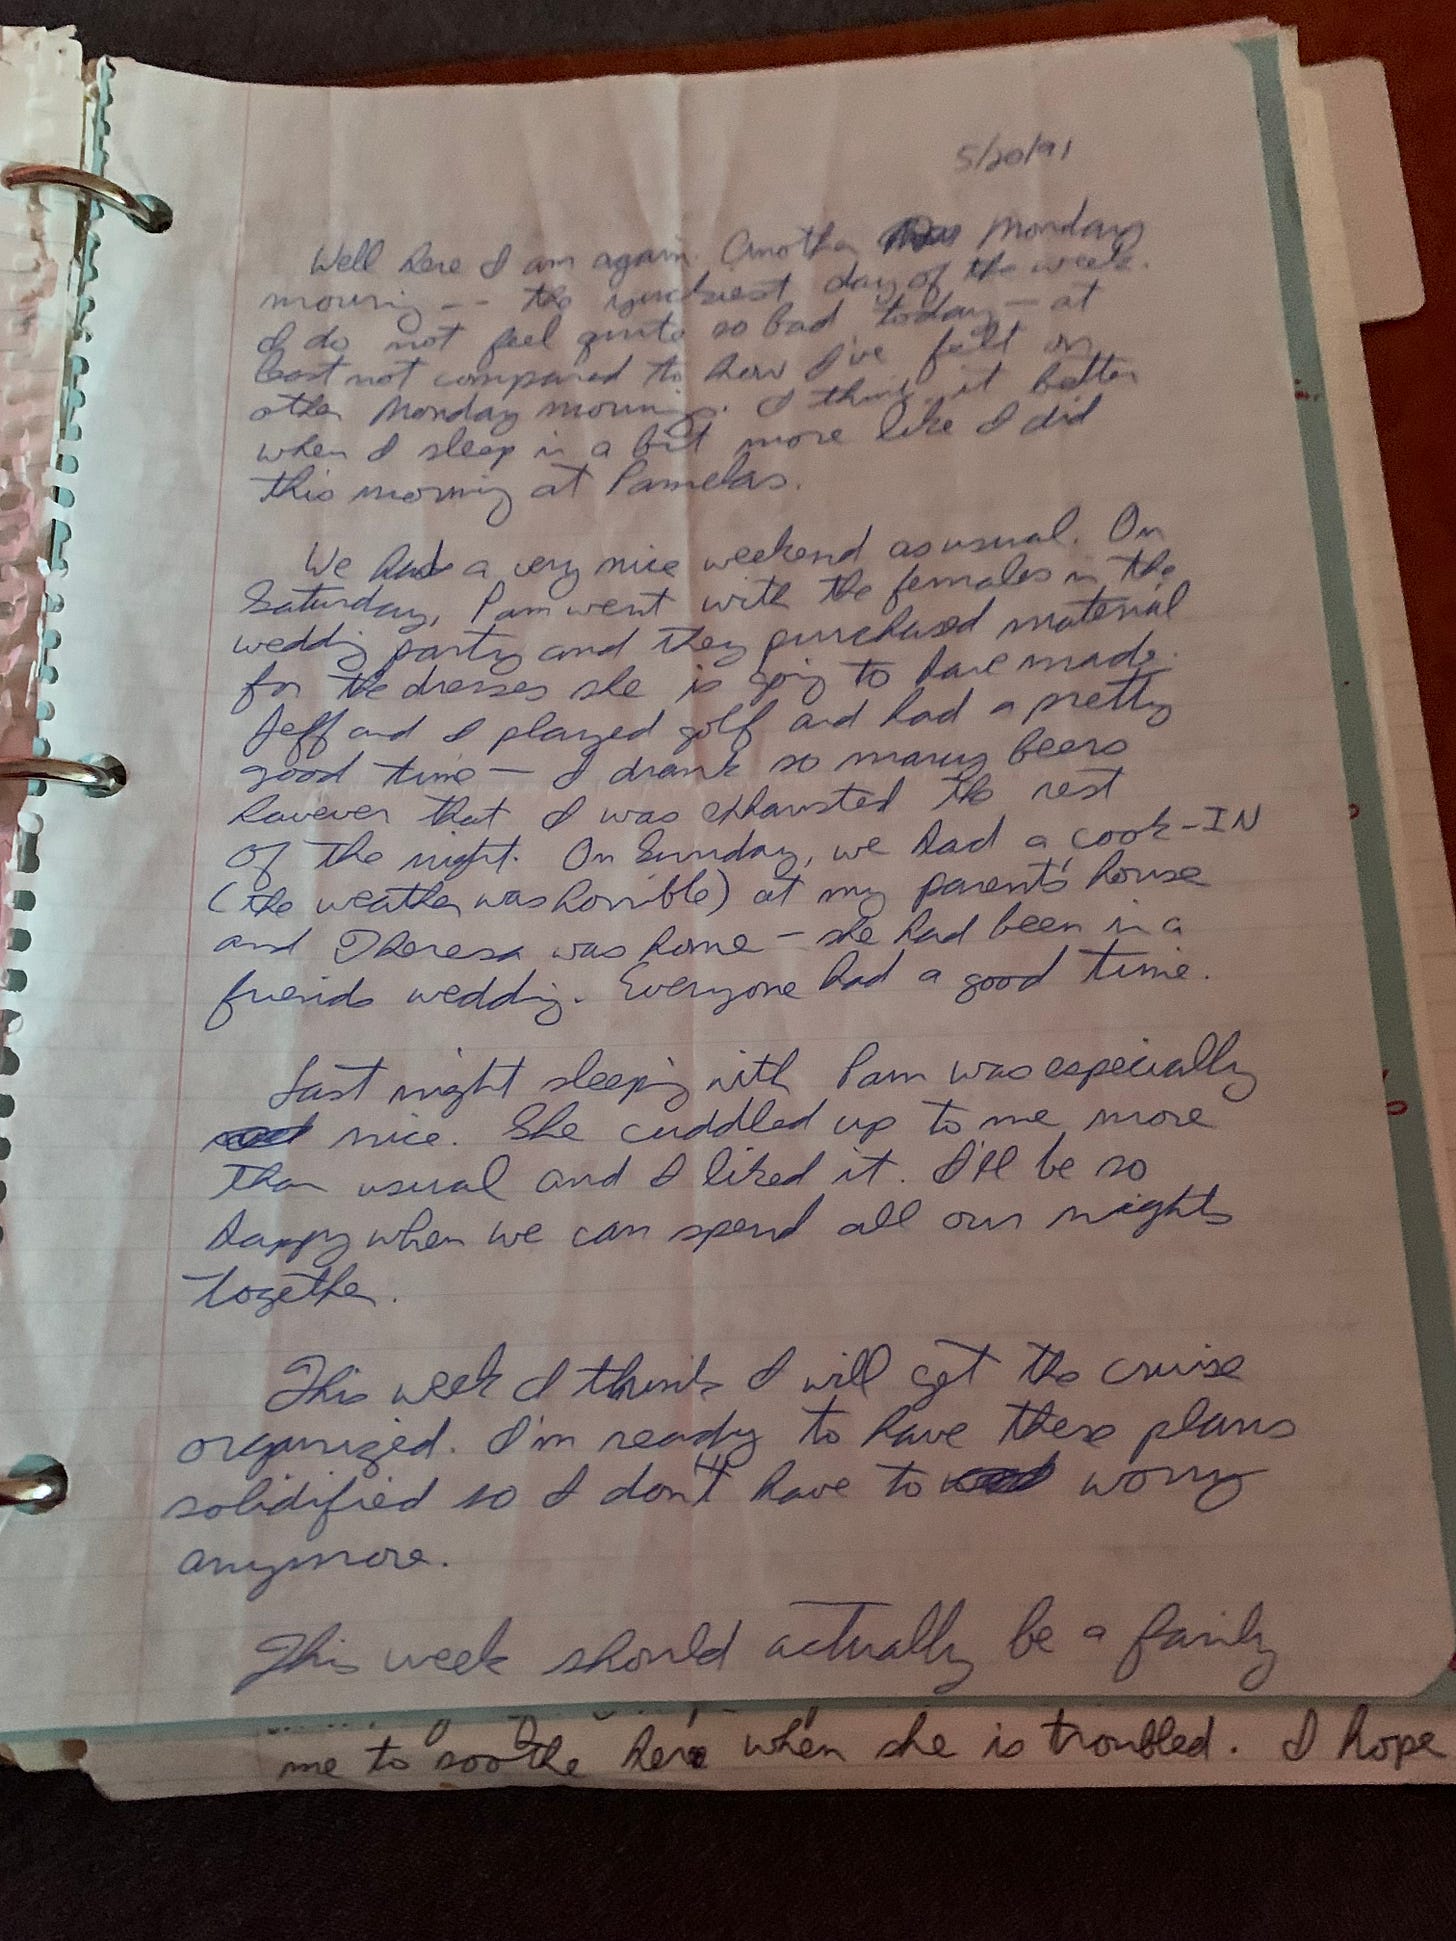 5/20/91
Well here I am again. Another Monday
morning -- the yuckiest day of the week.
I do not feel quite so bad today — at
least not compared to how I've felt on
other Monday mornings. I think it better
when I sleep in a bit more like I did
this morning at Pamelas.
We had a very nice weekend as usual. On
Saturday, Pam went with the females in the
wedding party and they purchased material
for the dresses she is going to have made.
Jeff and I played golf and had a pretty
good time — I drank so many beers
however that I was exhausted the rest
of the night. On Sunday, we had a cook-IN
(the weather was horrible) at my parent's house
and Theresa was home — she had been in a
friends wedding. Everyone had a good time.
Last night sleeping with Pam was especially
nice. She cuddled up to me more
than usual and I liked it. I'll be so
happy when we can spend all our nights
together.
This week I think I will get the cruise
organized. I'm ready to have these plans
solidified so I don't have to worry
anymore.
This week should actually be a fairly
me to soothe her when she is troubled. I hope